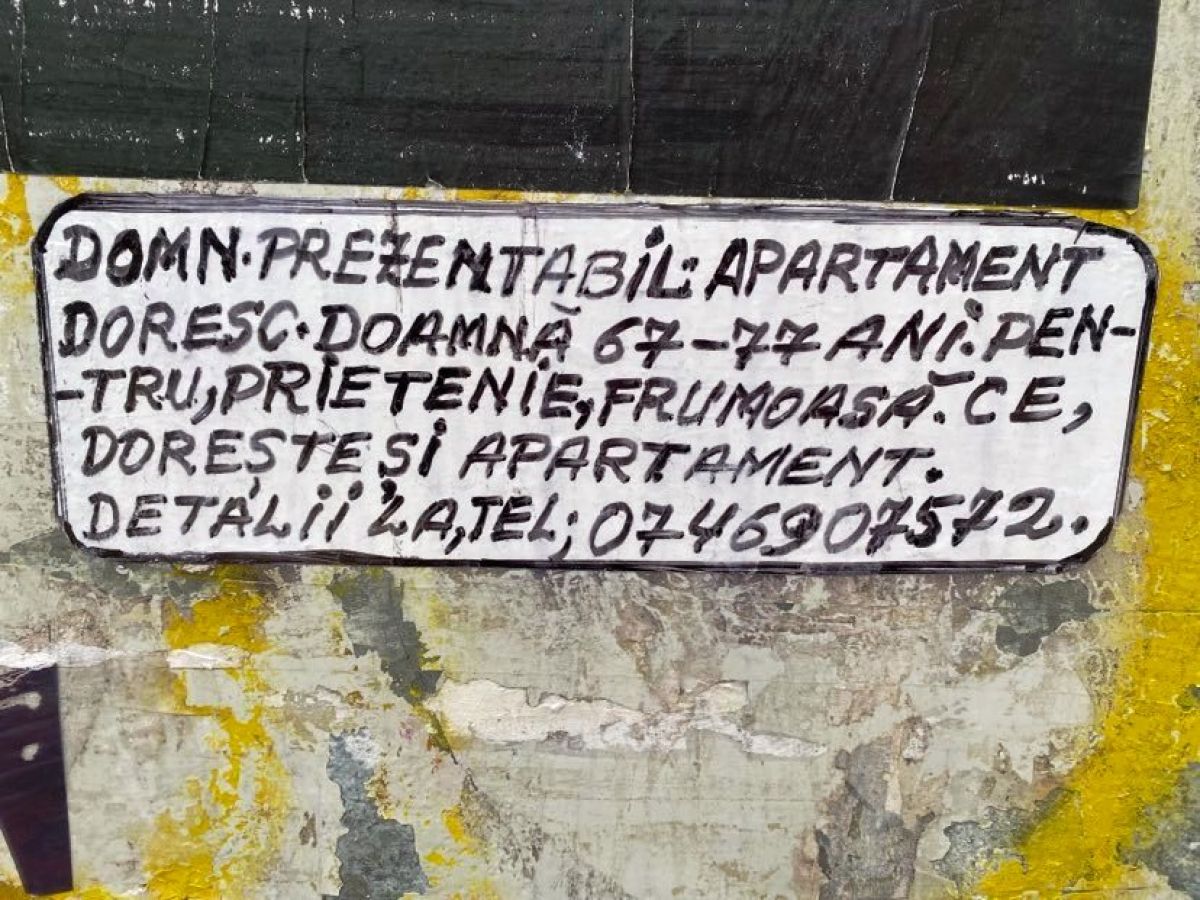 DOMN.PREZENTABIL: APARTAMENT
DORESC.DOAMNĂ 67-77 ANI.PEN-
-TRU,PRIETENIE,FRUMOASĂ.CE,
DOREȘTE ȘI APARTAMENT.
DETALII LA,TEL; 0746907572.